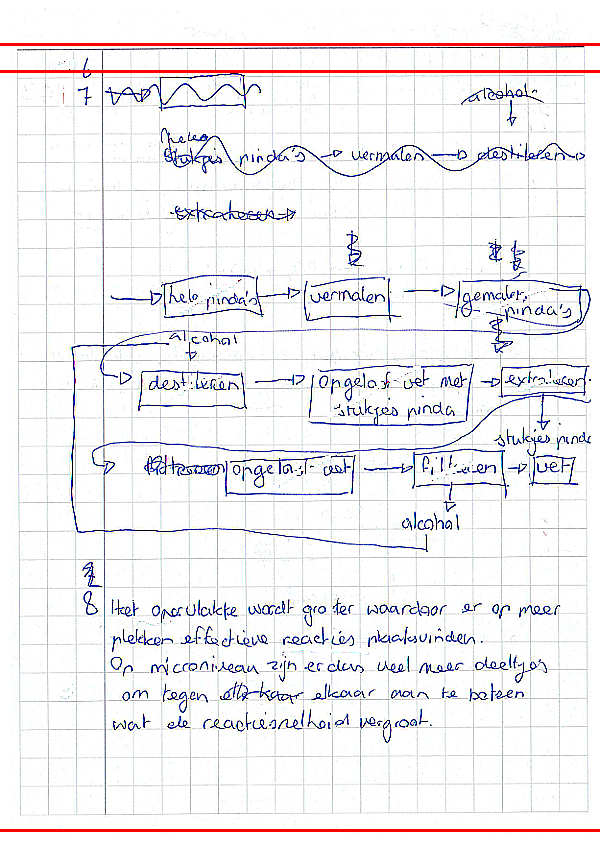 6
7
alcohol
hele
stukjes pinda's → vermalen → destileren →
extraheren →
→ hele pinda's → vermalen → gemalen pinda's
alcohol
→ destileren → opgelost vet met stukjes pinda → extraheren
stukjes pinda
→ opgelost vet → filtreren → vet
alcohol
8 Het oppervlakte wordt groter waardoor er op meer
plekken effectieve reacties plaatsvinden.
Op microniveau zijn er dus veel meer deeltjes
om tegen elkaar aan te botsen
wat de reactiesnelheid vergroot.